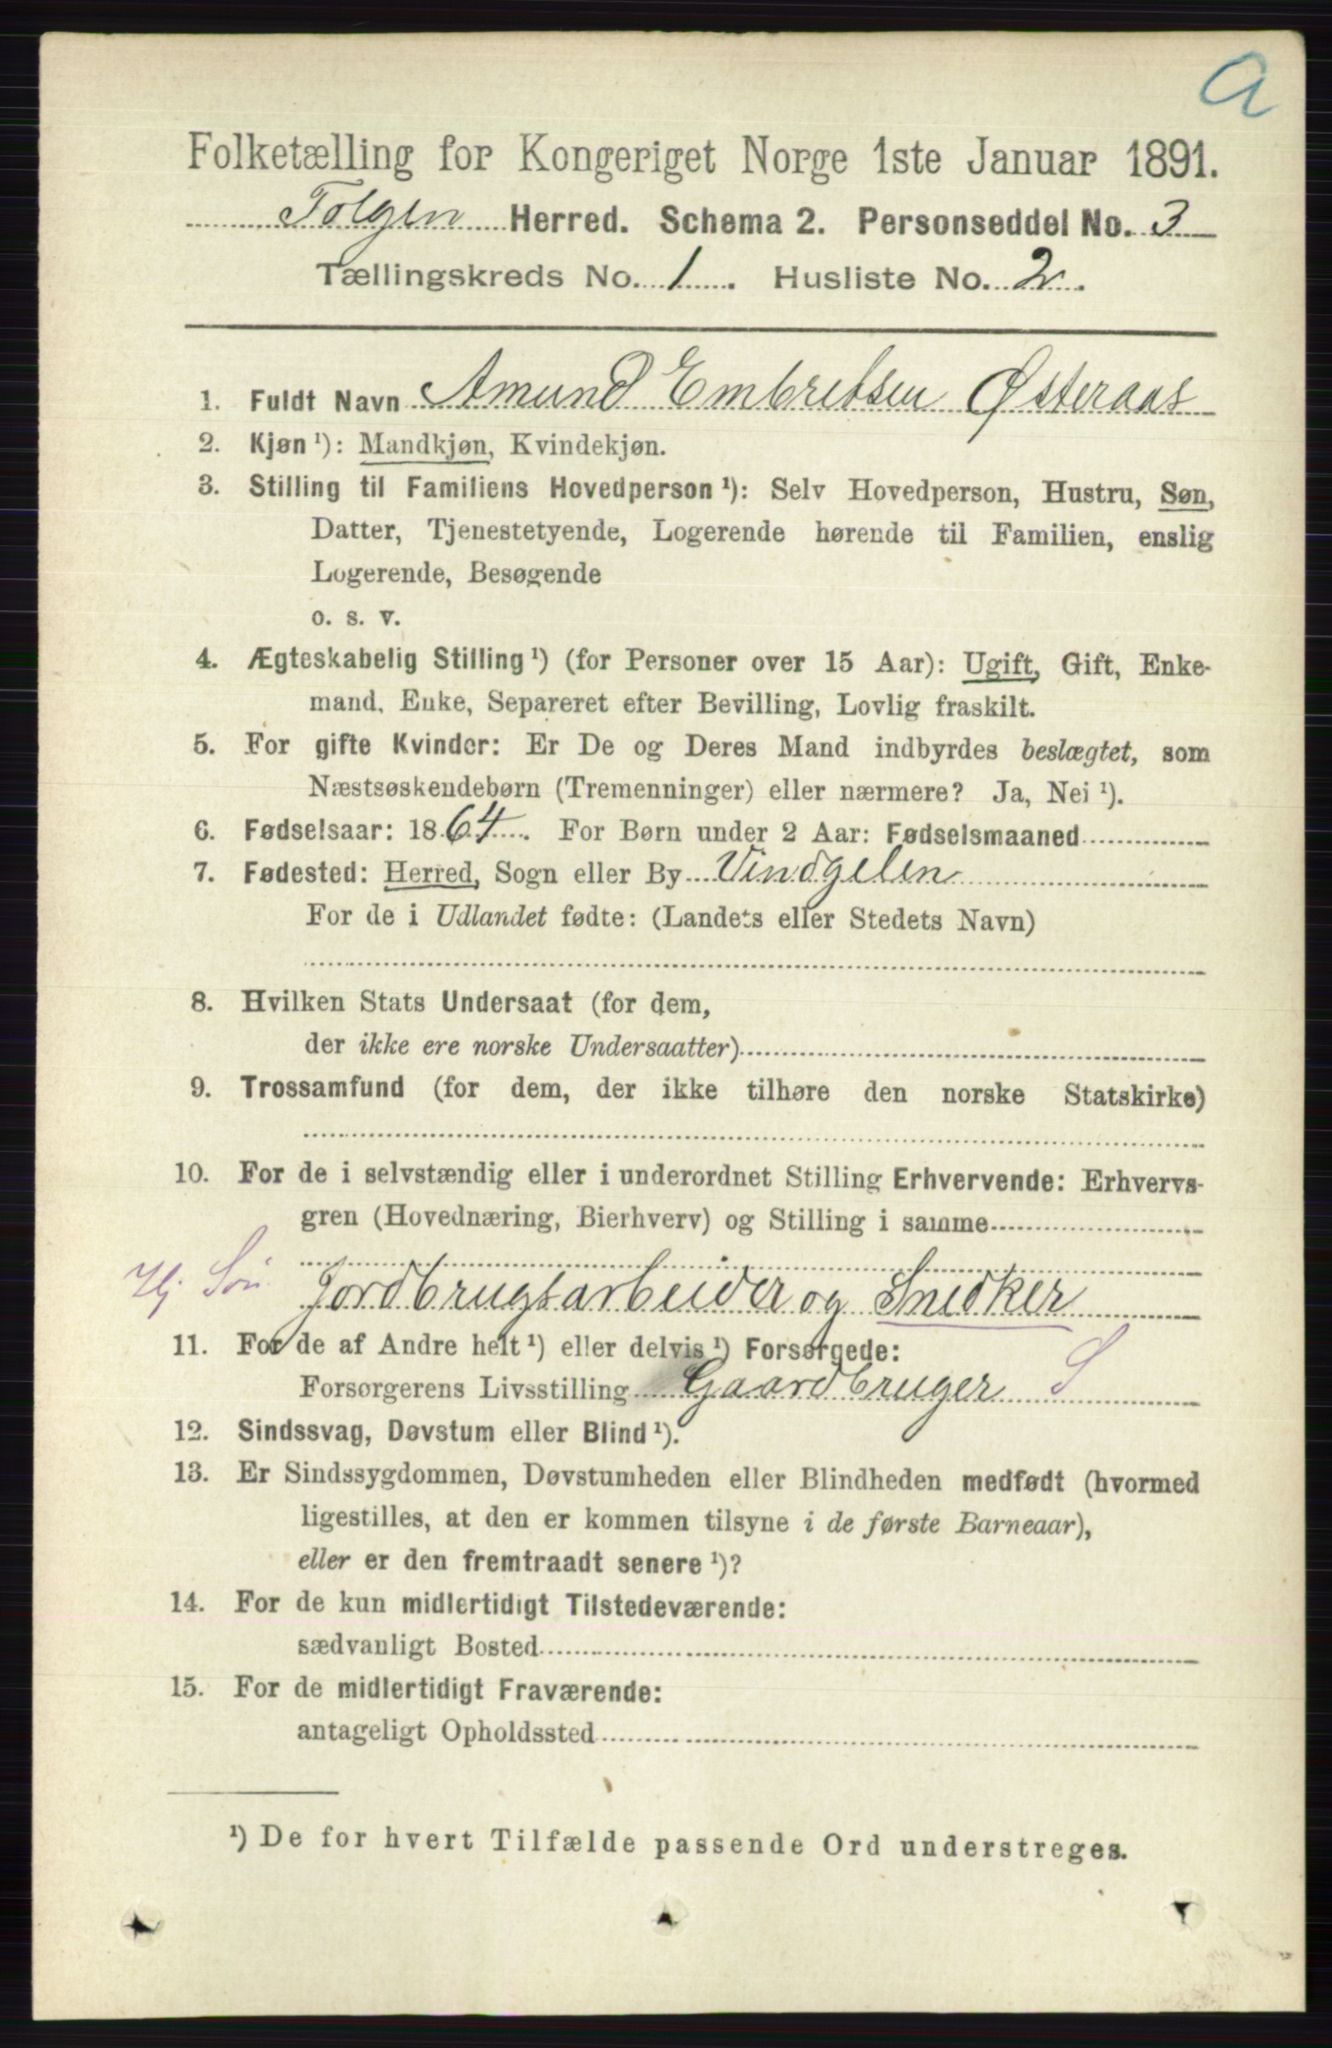 a
Folketælling for Kongeriget Norge 1ste Januar 1891.
Tolgen Herred. Schema 2. Personseddel No. 3
Tællingskreds No. 1. Husliste No. 2.
1. Fuldt Navn Amund Embretsen Østeraas
2. Kjøn ¹): Mandkjøn, Kvindekjøn.
3. Stilling til Familiens Hovedperson ¹): Selv Hovedperson, Hustru, Søn,
Datter, Tjenestetyende, Logerende hørende til Familien, enslig
Logerende, Besøgende
o. s. v.
4. Ægteskabelig Stilling ¹) (for Personer over 15 Aar): Ugift, Gift, Enke-
mand, Enke, Separeret efter Bevilling, Lovlig fraskilt.
5. For gifte Kvinder: Er De og Deres Mand indbyrdes beslægtet, som
Næstsøskendebørn (Tremenninger) eller nærmere? Ja, Nei ¹).
6. Fødselsaar: 1864. For Børn under 2 Aar: Fødselsmaaned
7. Fødested: Herred, Sogn eller By Vindgelen
For de i Udlandet fødte: (Landets eller Stedets Navn)
8. Hvilken Stats Undersaat (for dem,
der ikke ere norske Undersaatter)
9. Trossamfund (for dem, der ikke tilhøre den norske Statskirke)
10. For de i selvstændig eller i underordnet Stilling Erhvervende: Erhvervs-
gren (Hovednæring, Bierhverv) og Stilling i samme
Hj Søn Jordbrugsarbeider og Snedker
11. For de af Andre helt ¹) eller delvis ¹) Forsørgede:
Forsørgerens Livsstilling Gaardbruger S
12. Sindssvag, Døvstum eller Blind ¹).
13. Er Sindssygdommen, Døvstumheden eller Blindheden medfødt (hvormed
ligestilles, at den er kommen tilsyne i de første Barneaar),
eller er den fremtraadt senere ¹)?
14. For de kun midlertidigt Tilstedeværende:
sædvanligt Bosted
15. For de midlertidigt Fraværende:
antageligt Opholdssted
¹) De for hvert Tilfælde passende Ord understreges.